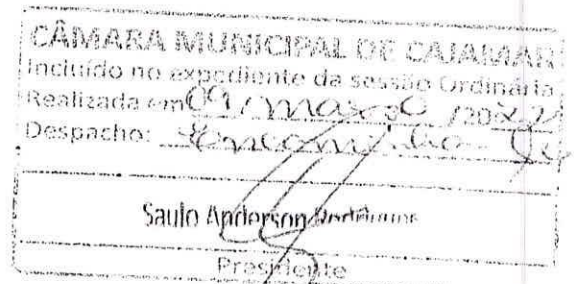 CÂMARA MUNICIPAL DE CAJAMAR
Incluído no expediente da sessão Ordinária
Realizada em 09 / março /2022
Despacho: Encaminha-se
Saulo Anderson Rodrigues
Presidente